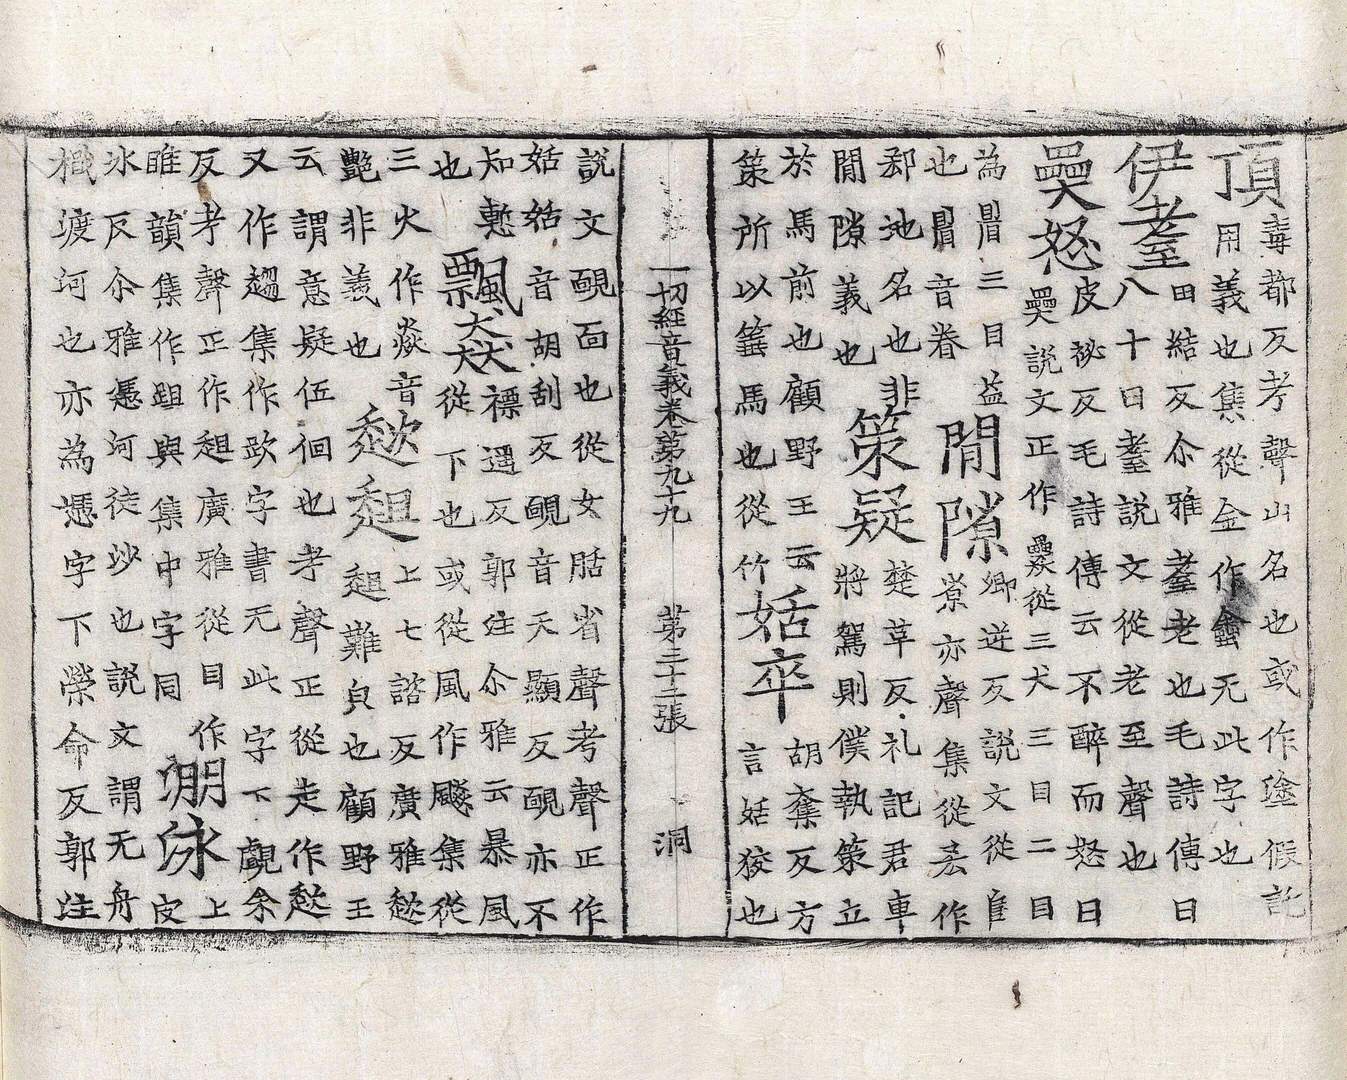 頂 毒都反考聲山名也或作塗假託
用義也集從金作鑫无此字也
伊耋 田結反尒雅耋老也毛詩傳曰
八十曰耋說文從老至聲也
奰怒 皮祕反毛詩傳云不醉而怒曰
奰說文正作奰從三犬三目二目
為𥄎三目益
也𥄎音眷
閒隙 鄉逆反說文從𨸏
寮亦聲集從作
郄地名也非
閒隙義也
策疑 楚革反礼記君車
將駕則僕執策立
於馬前也顧野王云
策所以箠馬也從竹
姡卒 胡奪反方
言姡狡也
一切經音義卷第九十九 第三十二張 洞
說文靦面也從女𦧇省聲考聲正作
姡姡音胡刮反靦音天顯反靦亦不
知慙
也
飄猋 褾遥反郭注尒雅云暴風
從下也或從風作飈集從
三火作焱音
艷非義也
趑趄 上七諮反廣雅趑
趄難皃也顧野王
云謂意疑伍佪也考聲正從走作趑
又作趦集作欧字書无此字下覰余
反考聲正作趄廣雅從目作
睢韻集作跙與集中字同
淜泳 上
皮
冰反尒雅憑河徒沙也說文謂无舟
檝渡河也亦為憑字下榮命反郭注